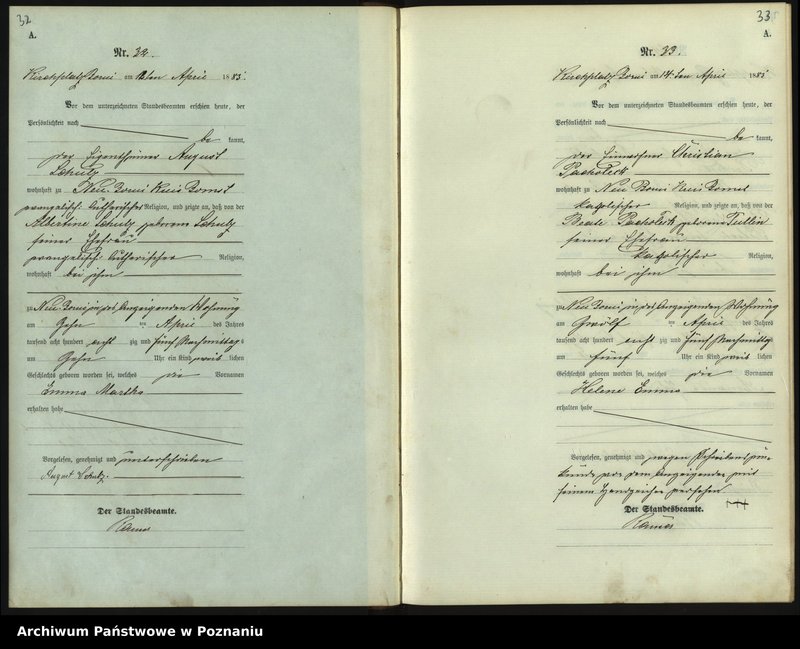 32
A.
Nr. 32.
Kirchplatz Borui am 12ten April 1885.
Vor dem unterzeichneten Standesbeamten erschien heute, der
Persönlichkeit nach
be kannt,
der Eigenthümer August
Schulz
wohnhaft zu Neu Borui Kreis Bomst
evangelisch lutherischer Religion, und zeigte an, daß von der
Albertine Schulz geborene Schulz
seiner Ehefrau
evangelisch lutherischer Religion,
wohnhaft bei ihm
zu Neu Borui in des Anzeigenden Wohnung
am Zehn ten April des Jahres
tausend acht hundert acht zig und fünf Nachmittags
um Zehn Uhr ein Kind weib lichen
Geschlechts geboren worden sei, welches die Vornamen
Emma Martha
erhalten habe
Vorgelesen, genehmigt und unterschrieben
August Schulz.
Der Standesbeamte.
33
A.
Nr. 33.
Kirchplatz Borui am 14ten April 1885
Vor dem unterzeichneten Standesbeamten erschien heute, der
Persönlichkeit nach
be kannt,
der Einwohner Christian
Pacholeck
wohnhaft zu Neu Borui Kreis Bomst
katholischer Religion, und zeigte an, daß von der
Beate Pacholeck geborene Tullin
seiner Ehefrau
katholischer Religion,
wohnhaft bei ihm
zu Neu Borui in des Anzeigenden Wohnung
am Zwölf ten April des Jahres
tausend acht hundert acht zig und fünf Nachmittags
um fünf Uhr ein Kind weib lichen
Geschlechts geboren worden sei, welches die Vornamen
Helene Emma
erhalten habe
Vorgelesen, genehmigt und wegen Schreibensun-
kunde von dem Anzeigenden mit
seinem Handzeichen versehen
+++
Der Standesbeamte.
Archiwum Państwowe w Poznaniu